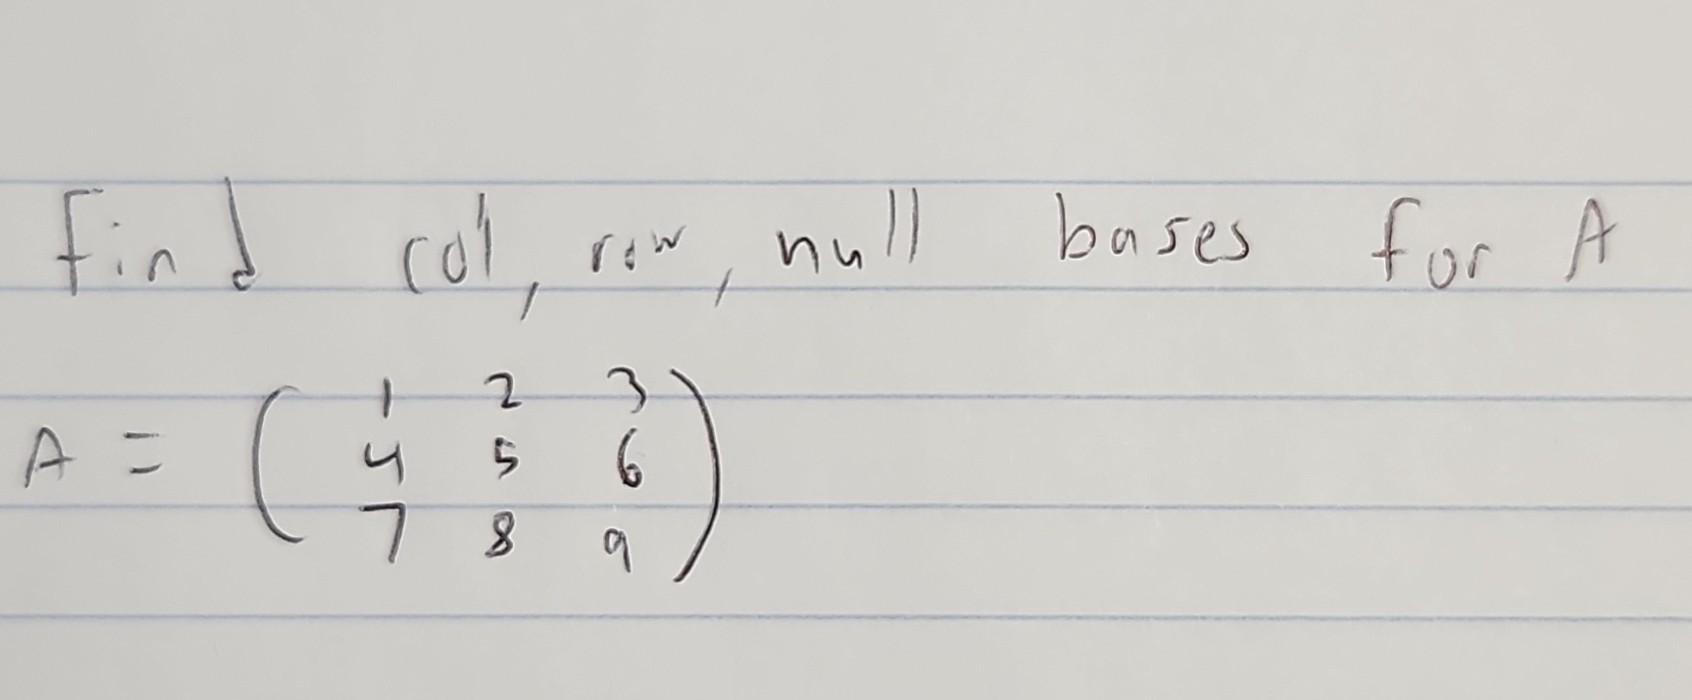 Find col, row, null bases for A
A = ( 1 2 3
4 5 6
7 8 9 )